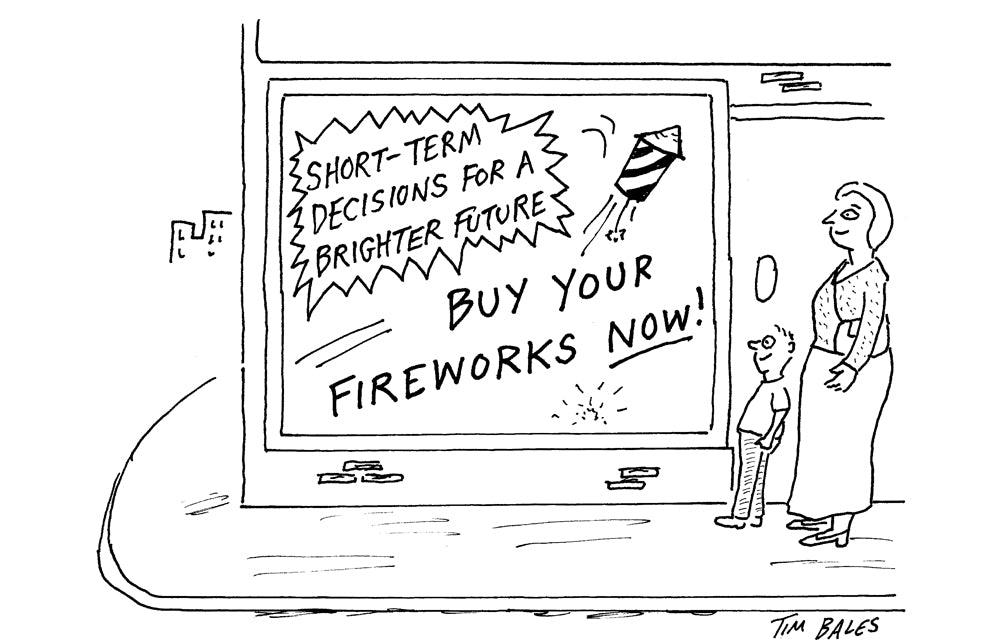 SHORT-TERM
DECISIONS FOR A
BRIGHTER FUTURE
BUY YOUR
FIREWORKS NOW!
TIM BALES